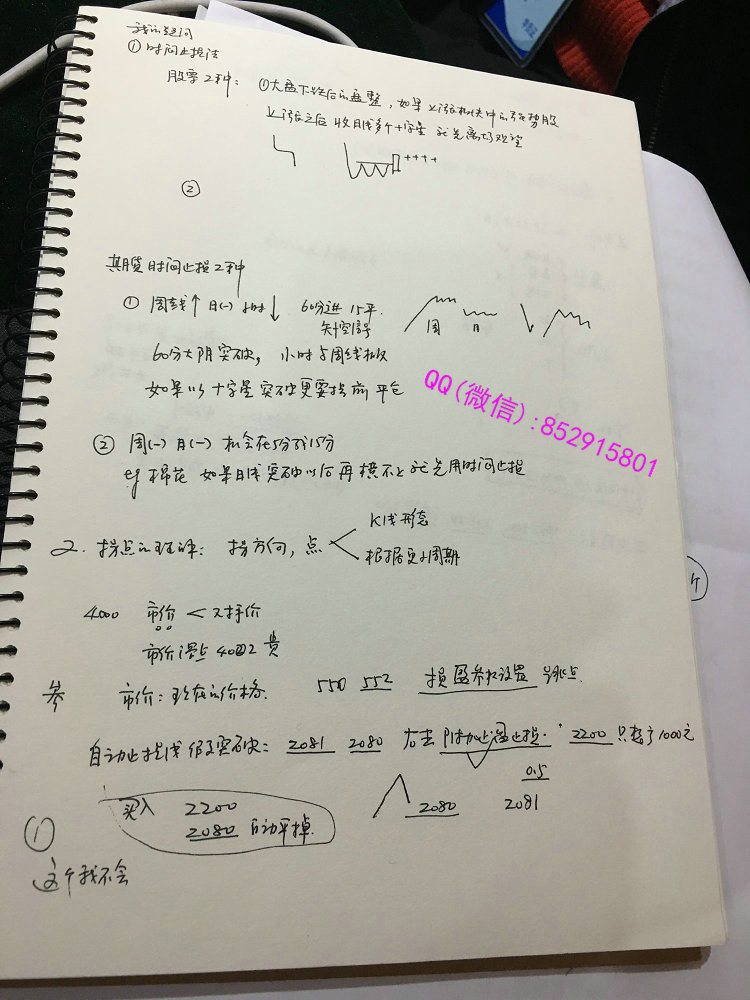 我的疑问
① 时间止损法
股票2种: ①大盘下跌后的盘整, 如果上涨 中的强势股
上涨之后 收日线多个十字星 就先离场观望
②
期货时间止损2种
① 周线↑ 日(一) 小时↓ 60分进 15平.
周 日
60分大阴突破, 小时与周线相反
如果以十字星突破更要提前平仓
QQ(微信):852915801
② 周(一) 日(一) 机会在5分到15分
eg 棉花 如果日线突破以后再横不上就先用时间止损
2. 拐点的理解: 拐方向, 点
K线形态
根据更小周期
4000 市价 <
市价 4002 贵
市价: 现在的价格. 550 552 损盈参数设置
自动止损 假突破: 2081 2080 右击 附加止盈止损. 2200 只 了1000元
0.5
买入 2200
2080 自动平掉.
2080 2081
①
这个我不会